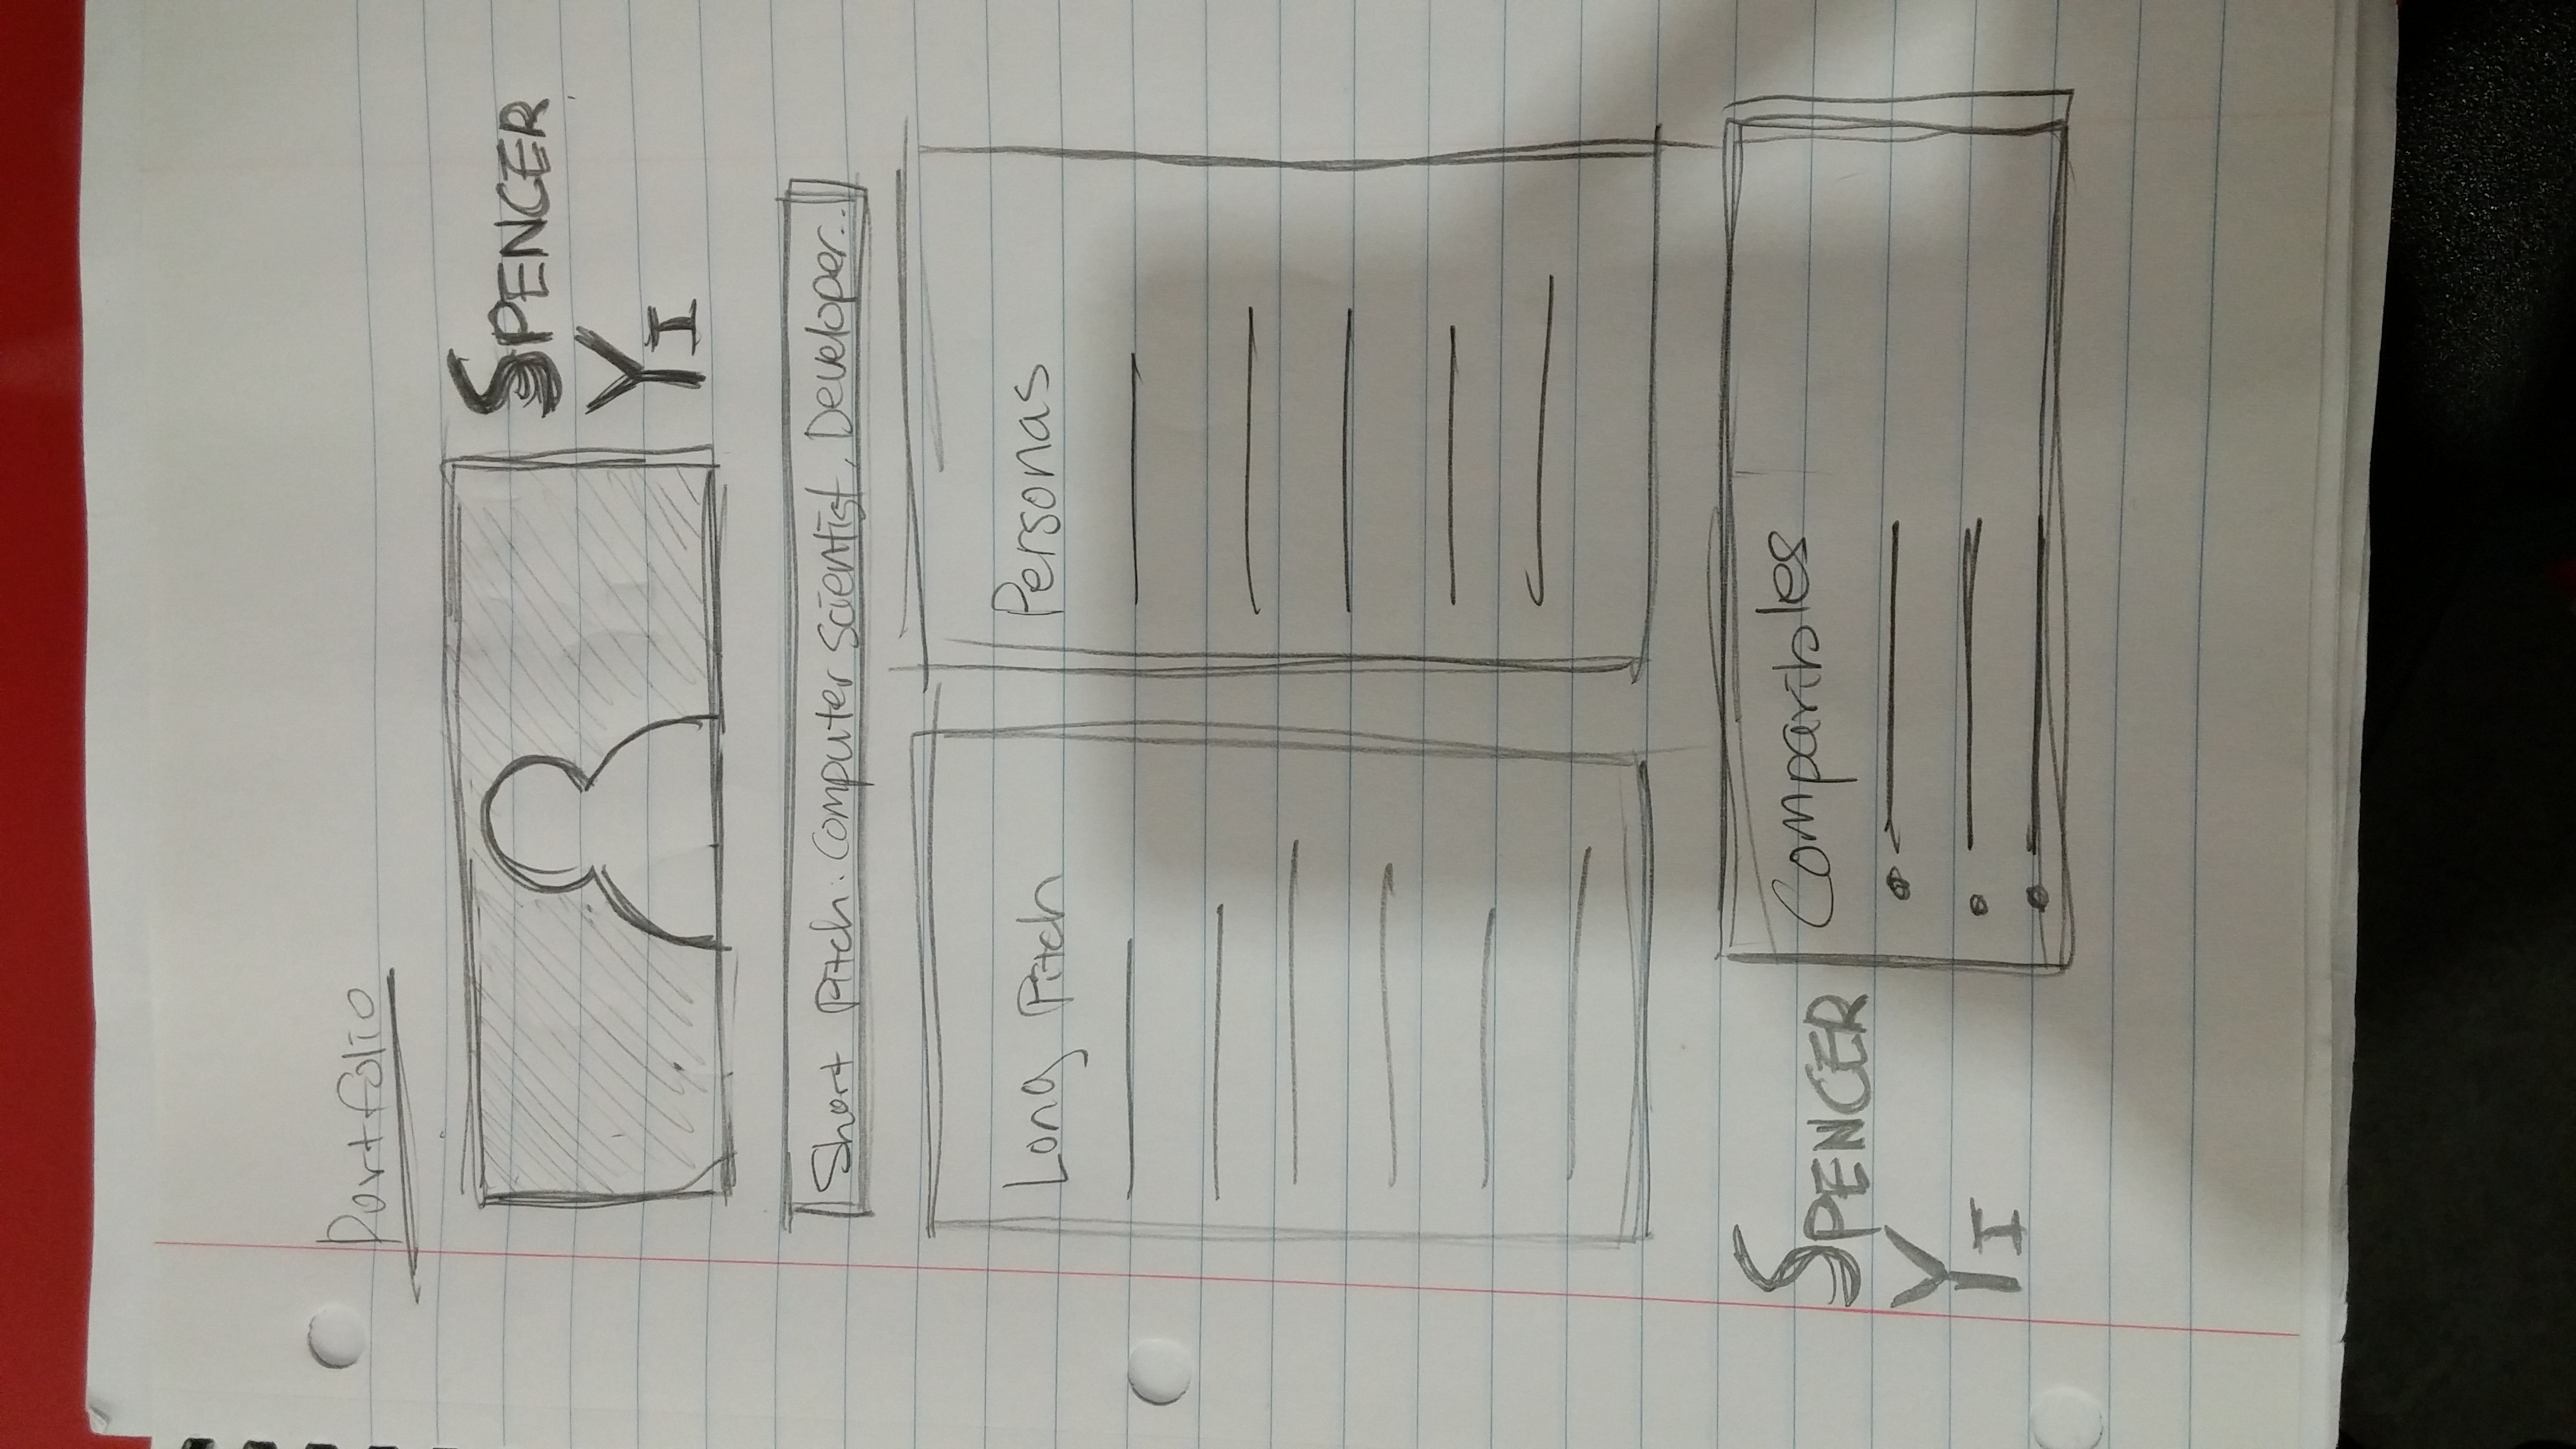 Portfolio
SPENCER
YI
Short Pitch: Computer Scientist, Developer...
Long Pitch
Personas
SPENCER
YI
Comparibles